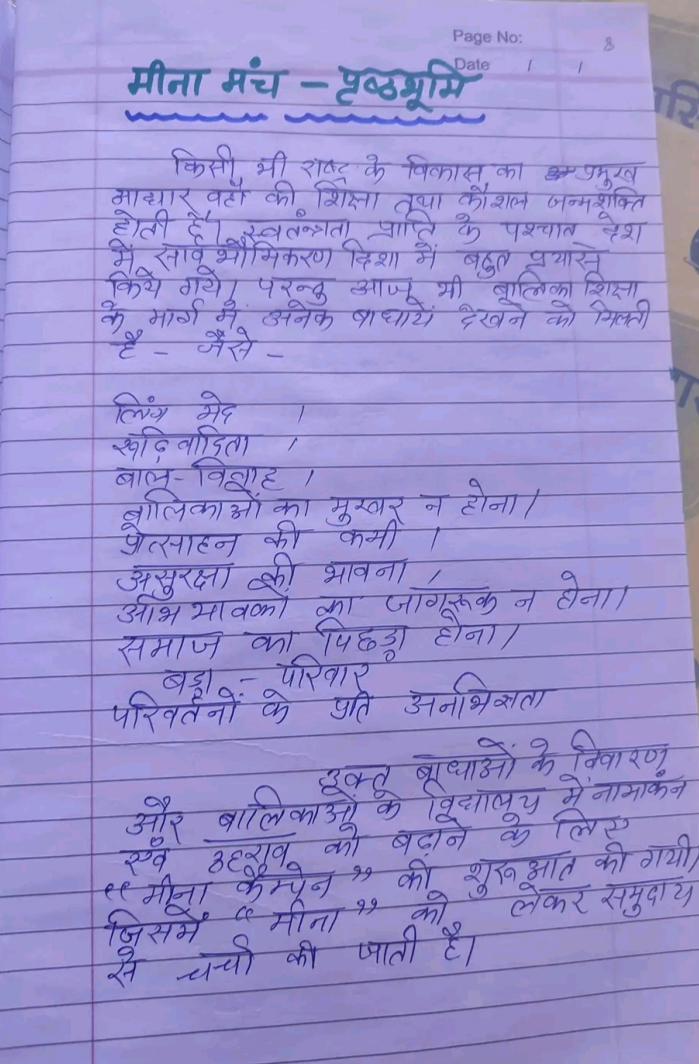 Page No: 8
Date / /
मीना मंच - पृष्ठभूमि
किसी भी राष्ट्र के विकास का प्रमुख
आधार वहाँ की शिक्षा तथा कौशल जन्मशक्ति
होती है। स्वतंत्रता प्राप्ति के पश्चात देश
में सार्वभौमिकरण दिशा में बहुत प्रयास
किये गये। परन्तु आज भी बालिका शिक्षा
के मार्ग में अनेक बाधायें देखने को मिलती
है - जैसे -
लिंग भेद ।
रूढ़िवादिता ।
बाल-विवाह ।
बालिकाओं का मुखर न होना।
प्रोत्साहन की कमी ।
असुरक्षा की भावना ।
अभिभावकों का जागरूक न होना।
समाज का पिछड़ा होना।
बड़ा - परिवार
परिवर्तनों के प्रति अनभिज्ञता
उक्त बाधाओं के निवारण
और बालिकाओं के विद्यालय में नामांकन
एवं ठहराव को बढ़ाने के लिए
“मीना कैम्पेन” की शुरूआत की गयी।
जिसमें “मीना” को लेकर समुदाय
से चर्चा की जाती है।